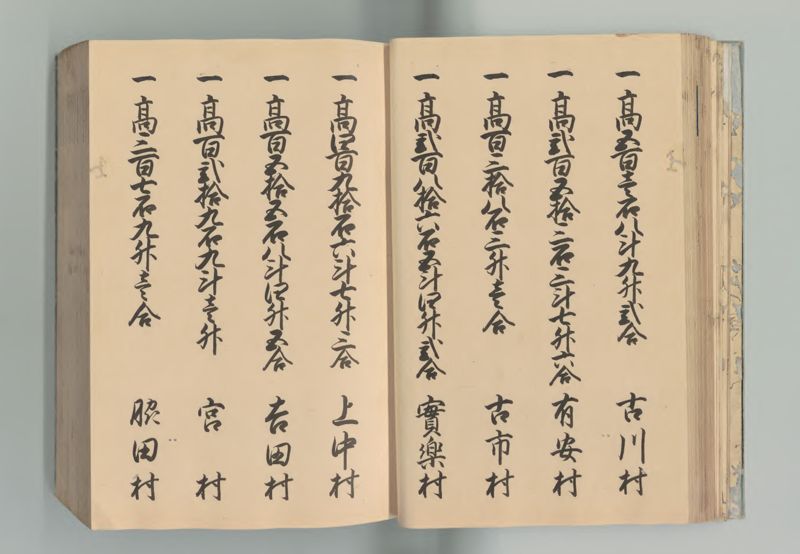 一高五百壱石八斗九升弐合 古川村
一高弐百五拾三石三斗七升六合 有安村
一高百三拾八石三升壱合 古市村
一高弐百八拾六石五斗四升弐合 實樂村
一高四百九拾石六斗七升三合 上中村
一高百五拾五石八斗四升五合 吉田村
一高百弐拾九石九斗壱升 宮村
一高三百七石九升壱合 脇田村